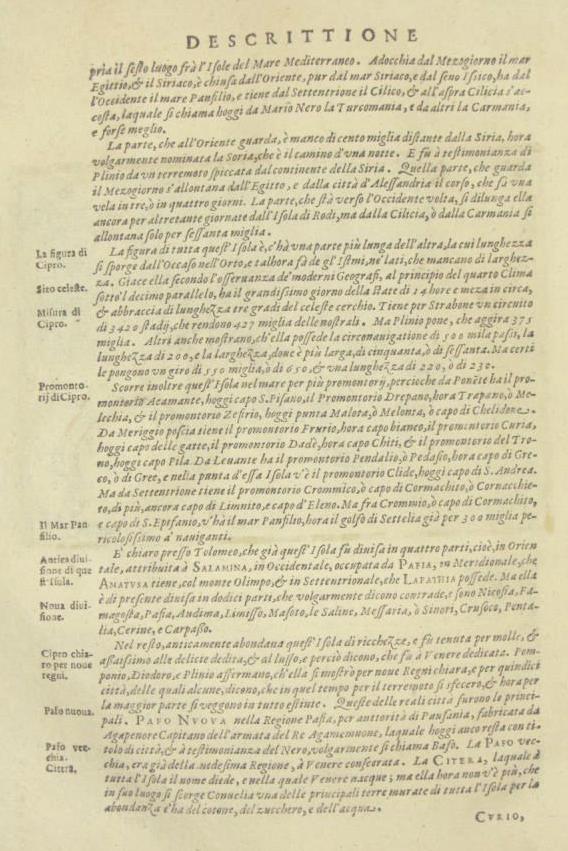 DESCRITTIONE
pria il sesto luogo frà l'Isole del Mare Mediterraneo. Adocchia dal Mezogiorno il mar
Egittio, & il Siriaco, è chiusa dall'Oriente, pur dal mar Siriaco, e dal seno Issico, ha dal
l'Occidente il mare Panfilio, e tiene dal Settentrione il Cilico, & all'aspra Cilicia s'ac-
costa, laquale si chiama hoggi da Mario Nero la Turcomania, e da altri la Carmania,
e forse meglio.
La parte, che all'Oriente guarda, è manco di cento miglia distante dalla Siria, hora
volgarmente nominata la Soria, che è il camino d'vna notte. E fù à testimonianza di
Plinio da vn terremoto spiccata dal continente della Siria. Quella parte, che guarda
il Mezogiorno s'allontana dall'Egitto, e dalla città d'Alessandria il corso, che fà vna
vela in tre, ò in quattro giorni. La parte, che stà verso l'Occidente volta, si dilunga ella
ancora per altretante giornate dall'Isola di Rodi, ma dalla Cilicia, ò dalla Carmania si
allontana solo per sessanta miglia.
La figura di
Cipro.
La figura di tutta quest'Isola è, c'hà vna parte più lunga dell'altra, la cui lunghezza
si sporge dall'Occaso nell'Orto, e talhora fà de gl'Istmi, ne'lati, che mancano di larghez-
Sito celeste.
za. Giace ella secondo l'osseruanza de'moderni Geografi, al principio del quarto Clima
sotto'l decimo parallelo, ha il grandissimo giorno della state di 14 hore e meza in circa,
Misura di
Cipro.
& abbraccia di lunghezza tre gradi del celeste cerchio. Tiene per Strabone vn circuito
di 3420 stadij, che rendono 427 miglia delle nostrali. Ma Plinio pone, che aggira 375
miglia. Altri anche mostrano, ch'ella possede la circonauigatione di 500 mila passi, la
lunghezza di 200, e la larghezza, doue è più larga, di cinquanta, ò di sessanta. Ma certi
le pongono vn giro di 550 miglia, ò di 650, & vna lunghezza di 220, ò di 230.
Promonto-
rij di Cipro.
Scorre inoltre quest'Isola nel mare per più promontorij, percioche da Ponẽte ha il pro-
montorio Acamante, hoggi capo S. Pifano, il Promontorio Drepano, hora Trapano, ò Me-
lechia, & il promontorio Zefirio, hoggi punta Malota, ò Melonta, ò capo di Chelidone.
Da Meriggio poscia tiene il promontorio Frurio, hora capo bianco, il promontorio Curia,
hoggi capo delle gatte, il promontorio Dadè, hora capo Chiti, & il promontorio del Tro-
no, hoggi capo Pila. Da Leuante ha il promontorio Pendalio, ò Pedasio, hora capo di Gre-
co, ò di Gree, e nella punta d'essa Isola v'è il promontorio Clide, hoggi capo di S. Andrea.
Ma da Settentrione tiene il promontorio Crommico, ò capo di Cormachito, ò Cornacchie-
to, di più, ancora capo di Limnito, e capo d'Eleno. Ma fra Crommio, ò capo di Cormachito,
Il Mar Pan
filio.
e capo di S. Epifanio, v'hà il mar Panfilio, hora il golfo di Settelia già per 300 miglia pe-
ricolosissimo a' nauiganti.
Antica diui-
sione di que
st'Isola.
E' chiaro presso Tolomeo, che già quest'Isola fù diuisa in quattro parti, cioè, in Orien
tale, attribuita à SALAMINA, in Occidentale, occupata da PAFIA, in Meridionale, che
AMATUSA tiene, col monte Olimpo, & in Settentrionale, che LAPATHIA possede. Ma ella
Noua diui-
sione.
è di presente diuisa in dodici parti, che volgarmente dicono contrade, e sono Nicosia, Fa-
magosta, Pafia, Audima, Limisso, Masoto, le Saline, Messaria, ò Sinori, Crusoco, Penta-
lia, Cerine, e Carpasso.
Cipro chia-
ro per noue
regni.
Nel resto, anticamente abondaua quest'Isola di ricchezze, e fù tenuta per molle, &
assaissimo alle delicie dedita, & al lusso, e perciò dicono, che fù à Venere dedicata. Pom-
ponio, Diodoro, e Plinio affermano, ch'ella si mostrò per noue Regni chiara, e per quindici
città, delle quali alcune, dicono, che in quel tempo per il terremoto si sfecero, & hora per
la maggior parte si veggono in tutto estinte. Queste delle reali città furono le princi-
Pafo nuoua.
pali. PAFO NVOVA nella Regione Pafia, per auttorità di Pausania, fabricata da
Agapenore Capitano dell'armata del Re Agamemnone, laquale hoggi anco resta con ti-
Pafo vec-
chia.
tolo di città, & à testimonianza del Nero, volgarmente si chiama Bafo. La PAFO vec-
chia, era già della medesima Regione, à Venere consecrata. La CITERA, laquale à
Citera,
tutta l'Isola il nome diede, e nella quale Venere nacque; ma ella hora non v'è più, che
in suo luogo si scorge Conuelia vna delle principali terre murate di tutta l'Isola per la
abondanza c'ha del cotone, del zucchero, e dell'acqua.
CVRIO,